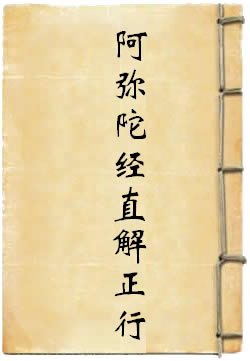 阿弥陀经直解正行